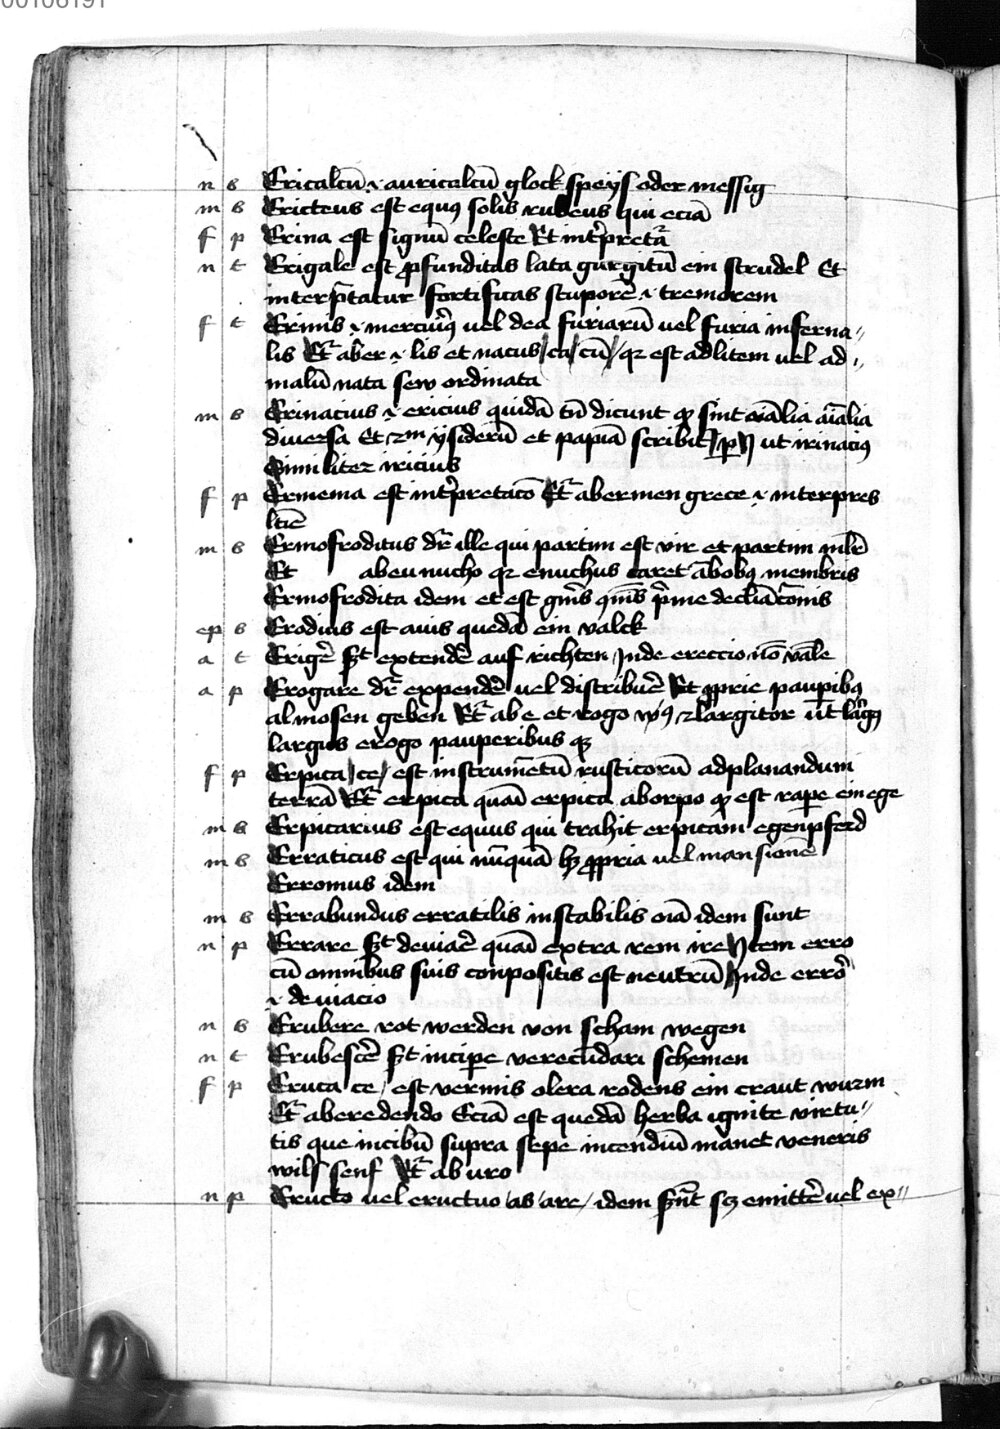 00106191
n s Ericalcū ⁊ auricalcū glock speys oder messig
m s Ericteus est equꝰ solis rubeus qui eciā
f p Erina est signū celeste Et int̄pretat̄
n t Erigale est ꝓfunditas lata gurgitū ein strudel Et
interp̄tatur fortificas stuporē ⁊ tremorem
f t Erinis ⁊ mercuriꝰ vel dea furiarū vel furia inferna〃
lis Et̄ ab er ⁊ lis et natus / ta / tū / qz est ad litem vel ad〃
malū nata sew ordinata
m s Erinacius ⁊ ericius quidā tn̄ dicunt ꝙ sint aīalia
diuersa Et 2m ysiderū et papiā scribit̄ ut irinaciꝰ
Similiter iricius
f p Ermema est int̄pretacō Et̄ ab ermen grece ⁊ interpres
latīe
m s Ermofroditus dr̄ ille qui partim est vir et partim ml̄r
Et ab eunucho qz enuchus caret ābobꝰ membris
Ermofrodita idem et est gn̄is p̄me declīacōnis
ep s Erodius est auis quedā ein valck
a t Erigē̄ st̄ extendē̄ auf richten Inde ereccio
a p Erogare dr̄ expendē̄ vel distribuē̄ Et ꝓprie pauꝑibꝰ
almosen geben Et̄ ab e et rogo
largus erogo pauperibus qz
f p Erpica / ce / est instrumētū rusticorū ad planandum
terrā Et̄ erpica quāi erpica ab orpo ꝙ est rapē̄ ein ege
m s Erpicarius est equus qui trahit erpicam egenpferd
m s Erraticus est qui nūquā hꝫ ꝓpria vel mansionē
Erromus idem
m s Errabundus erratilis instabilis oīa idem sunt
n p Errare st̄ deuiarē quāi extra rem ire Item erro
cū omnibus suis conpositis est neutrū Inde error̄
⁊ deuiacio
n s Erubere rot werden von scham wegen
n t Erubescē̄ st̄ inciꝑe verecūdari schemen
f p Eruca ce / est vermis olera rodens ein craut wurm
Et̄ ab eredendo Eciā est quedā herba ignite virtu〃
tis que in cibū supra sepe incendiū manet veneris
wilf senf Et̄ ab uro
n p Eructo vel eructuo / as / are / idem sūt sꝫ emittē̄ vel ex〃